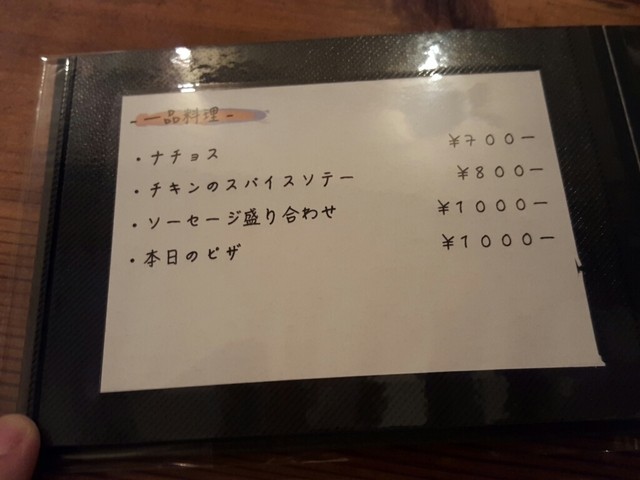 - 一品料理 -
・ナチョス ¥700ー
・チキンのスパイスソテー ¥800ー
・ソーセージ盛り合わせ ¥1000ー
・本日のピザ ¥1000ー